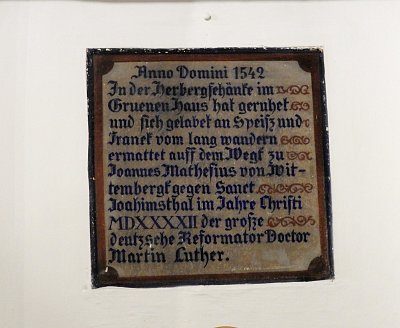 Anno Domini 1542
In der Herbergschänke im
Gruenen Haus hat geruhet
und sich gelabet an Speisz und
Tranck vom lang wandern
ermattet auff dem Wegk zu
Joannes Mathesius von Wit-
tenbergk gegen Sanct
Joahimsthal im Jahre Christi
MDXXXXII der große
deutzsche Reformator Doctor
Martin Luther.